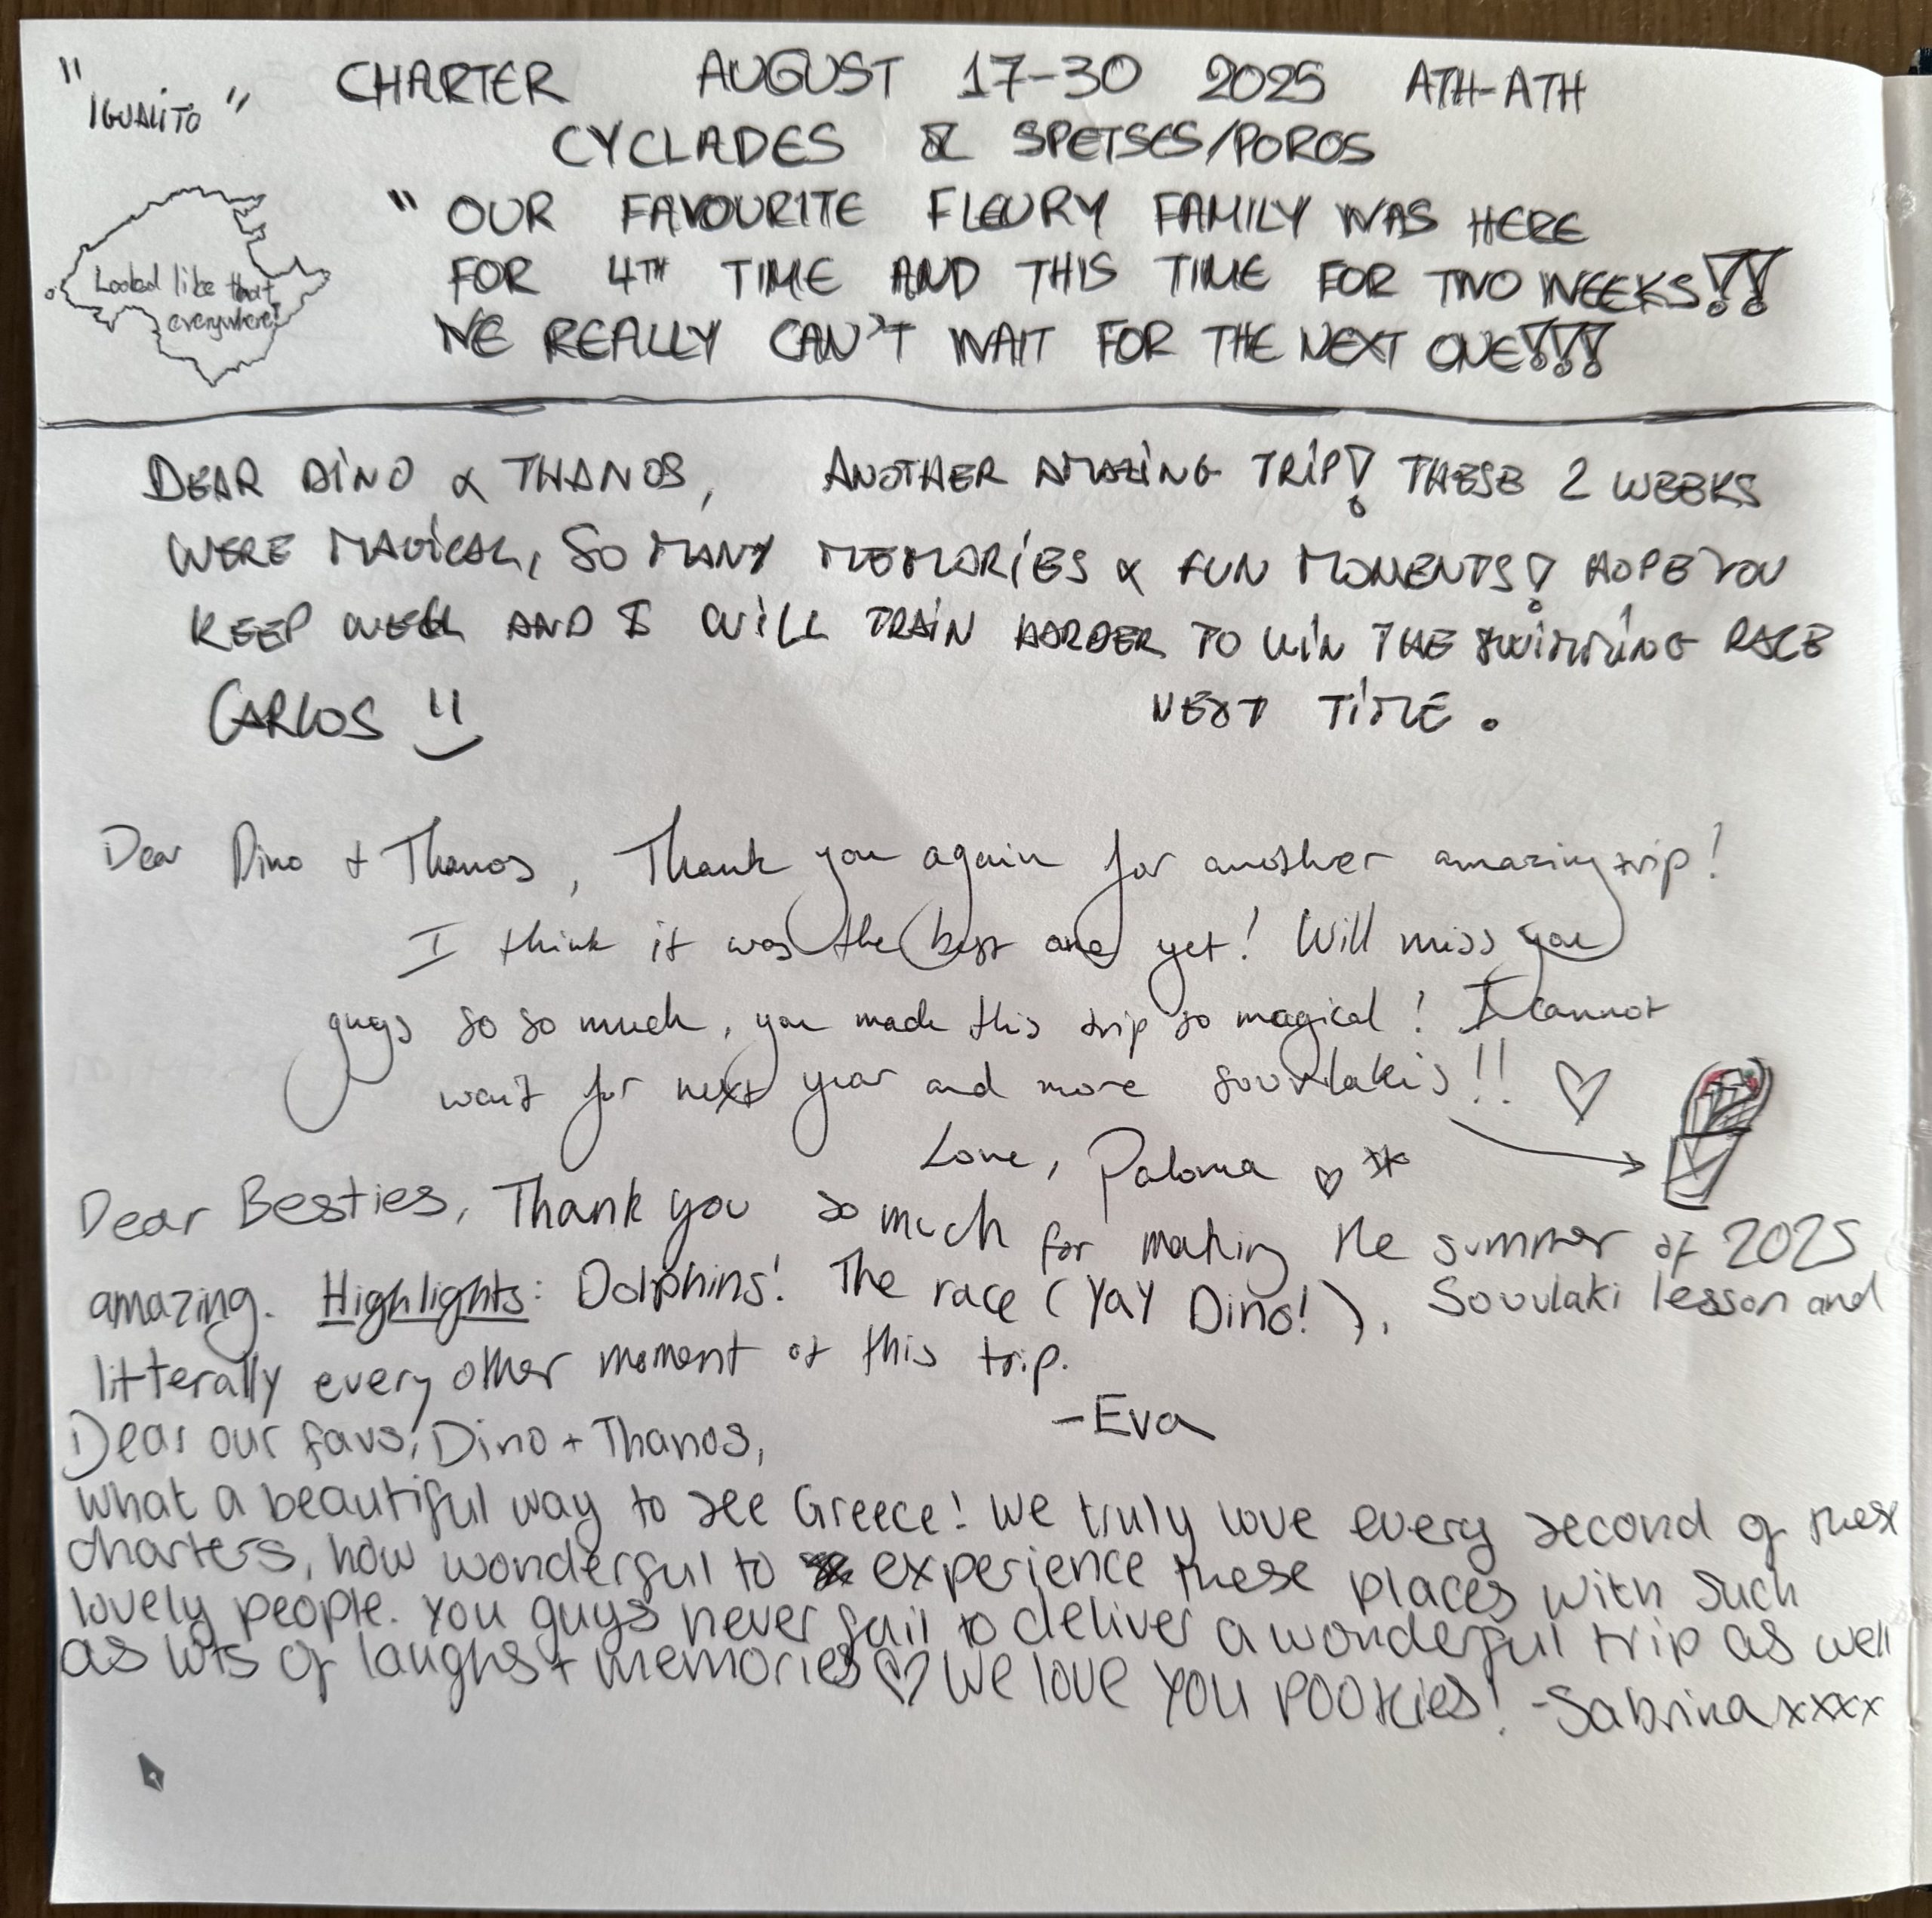 "IGUALITO"
CHARTER AUGUST 17-30 2025 ATH-ATH
CYCLADES & SPETSES/POROS
"OUR FAVOURITE FLEURY FAMILY WAS HERE
FOR 4TH TIME AND THIS TIME FOR TWO WEEKS!!
WE REALLY CAN'T WAIT FOR THE NEXT ONE!!!
Looked like that
everywhere!
DEAR DINO & THANOS, ANOTHER AMAZING TRIP! THESE 2 WEEKS
WERE MAGICAL, SO MANY MEMORIES & FUN MOMENTS! HOPE YOU
KEEP WELL AND I WILL TRAIN HARDER TO WIN THE SWIMMING RACE
NEXT TIME.
CARLOS
Dear Dino + Thanos, Thank you again for another amazing trip!
I think it was the best one yet! Will miss you
guys so so much, you made this trip so magical! I cannot
wait for next year and more souvlakis!! ♡
Love, Paloma ♡ *
Dear Besties, Thank you so much for making the summer of 2025
amazing. Highlights: Dolphins! The race (YAY Dino!), Souvlaki lesson and
litterally every other moment of this trip.
-Eva
Dear our favs, Dino + Thanos,
What a beautiful way to see Greece! We truly love every second of these
charters, how wonderful to experience these places with such
lovely people. You guys never fail to deliver a wonderful trip as well
as lots of laughs + memories ♡ We love you POOKies! -Sabrina xxxx